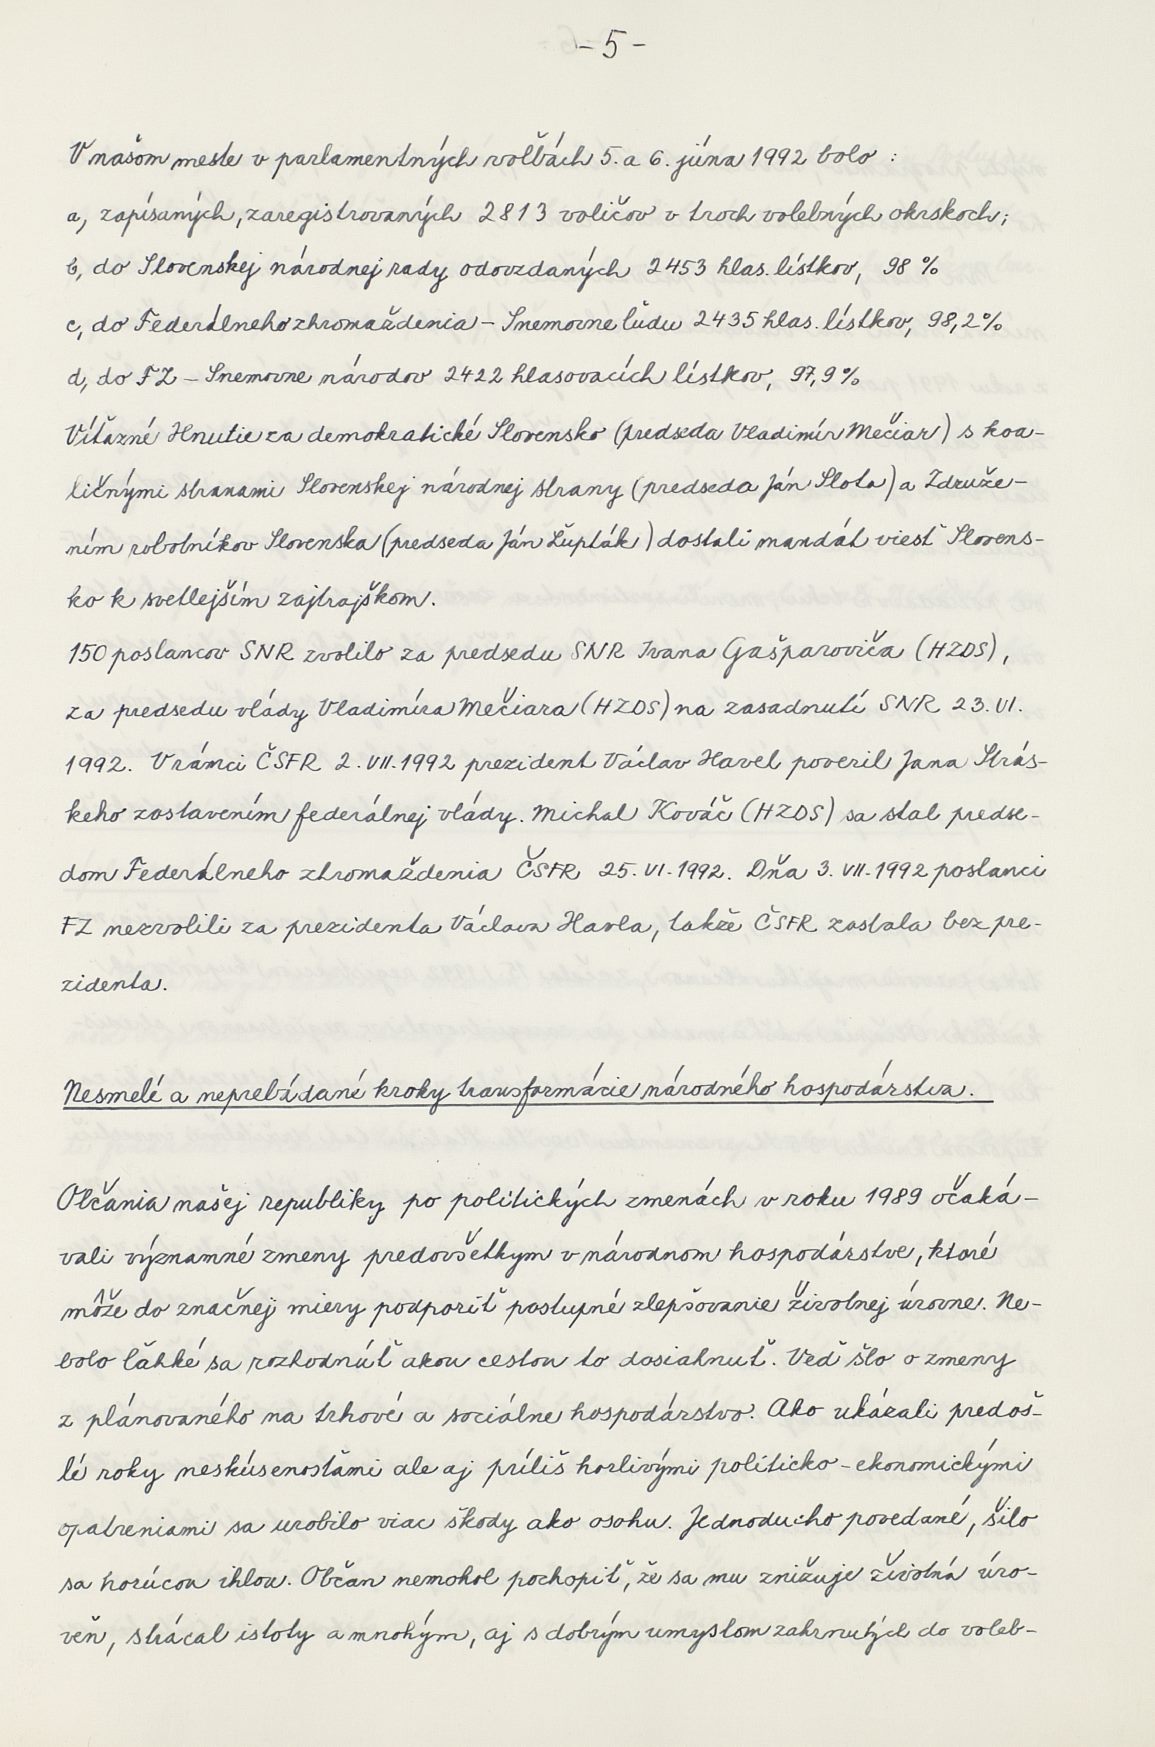 - 5 -
V našom meste v parlamentných voľbách 5. a 6. júna 1992 bolo :
a, zapísaných, zaregistrovaných 2813 voličov v troch volebných okrskoch;
b, do Slovenskej národnej rady odovzdaných 2453 hlas. lístkov, 98 %
c, do Federálneho zhromaždenia – Snemovne ľudu 2435 hlas. lístkov, 98,2%
d, do FZ – Snemovne národov 2422 hlasovacích lístkov, 97,9 %
Víťazné Hnutie za demokratické Slovensko (predseda Vladimír Mečiar) s koa-
ličnými stranami Slovenskej národnej strany (predseda Ján Slota) a Združe-
ním robotníkov Slovenska (predseda Ján Ľupták) dostali mandát viesť Slovens-
ko k svetlejším zajtrajškom.
150 poslancov SNR zvolilo za predsedu SNR Ivana Gašparoviča (HZDS),
za predsedu vlády Vladimíra Mečiara (HZDS) na zasadnutí SNR 23. VI.
1992. V rámci ČSFR 2. VII. 1992 prezident Václav Havel poveril Jana Strás-
keho zostavením federálnej vlády. Michal Kováč (HZDS) sa stal predse-
dom Federálneho zhromaždenia ČSFR 25. VI. 1992. Dňa 3. VII. 1992 poslanci
FZ nezvolili za prezidenta Václava Havla, takže ČSFR zostala bez pre-
zidenta.
Nesmelé a neprebádané kroky transformácie národného hospodárstva.
Občania našej republiky po politických zmenách v roku 1989 očaká-
vali významné zmeny predovšetkým v národnom hospodárstve, ktoré
môže do značnej miery podporiť postupné zlepšovanie životnej úrovne. Ne-
bolo ľahké sa rozhodnúť akou cestou to dosiahnuť. Veď šlo o zmeny
z plánovaného na trhové a sociálne hospodárstvo. Ako ukázali predoš-
lé roky neskúsenosťami ale aj príliš horlivými politicko – ekonomickými
opatreniami sa urobilo viac škody ako osohu. Jednoducho povedané, šilo
sa horúcou ihlou. Občan nemohol pochopiť, že sa mu znižuje životná úro-
veň, strácal istoty a mnohým, aj s dobrým umyslom zahrnutých do voleb-